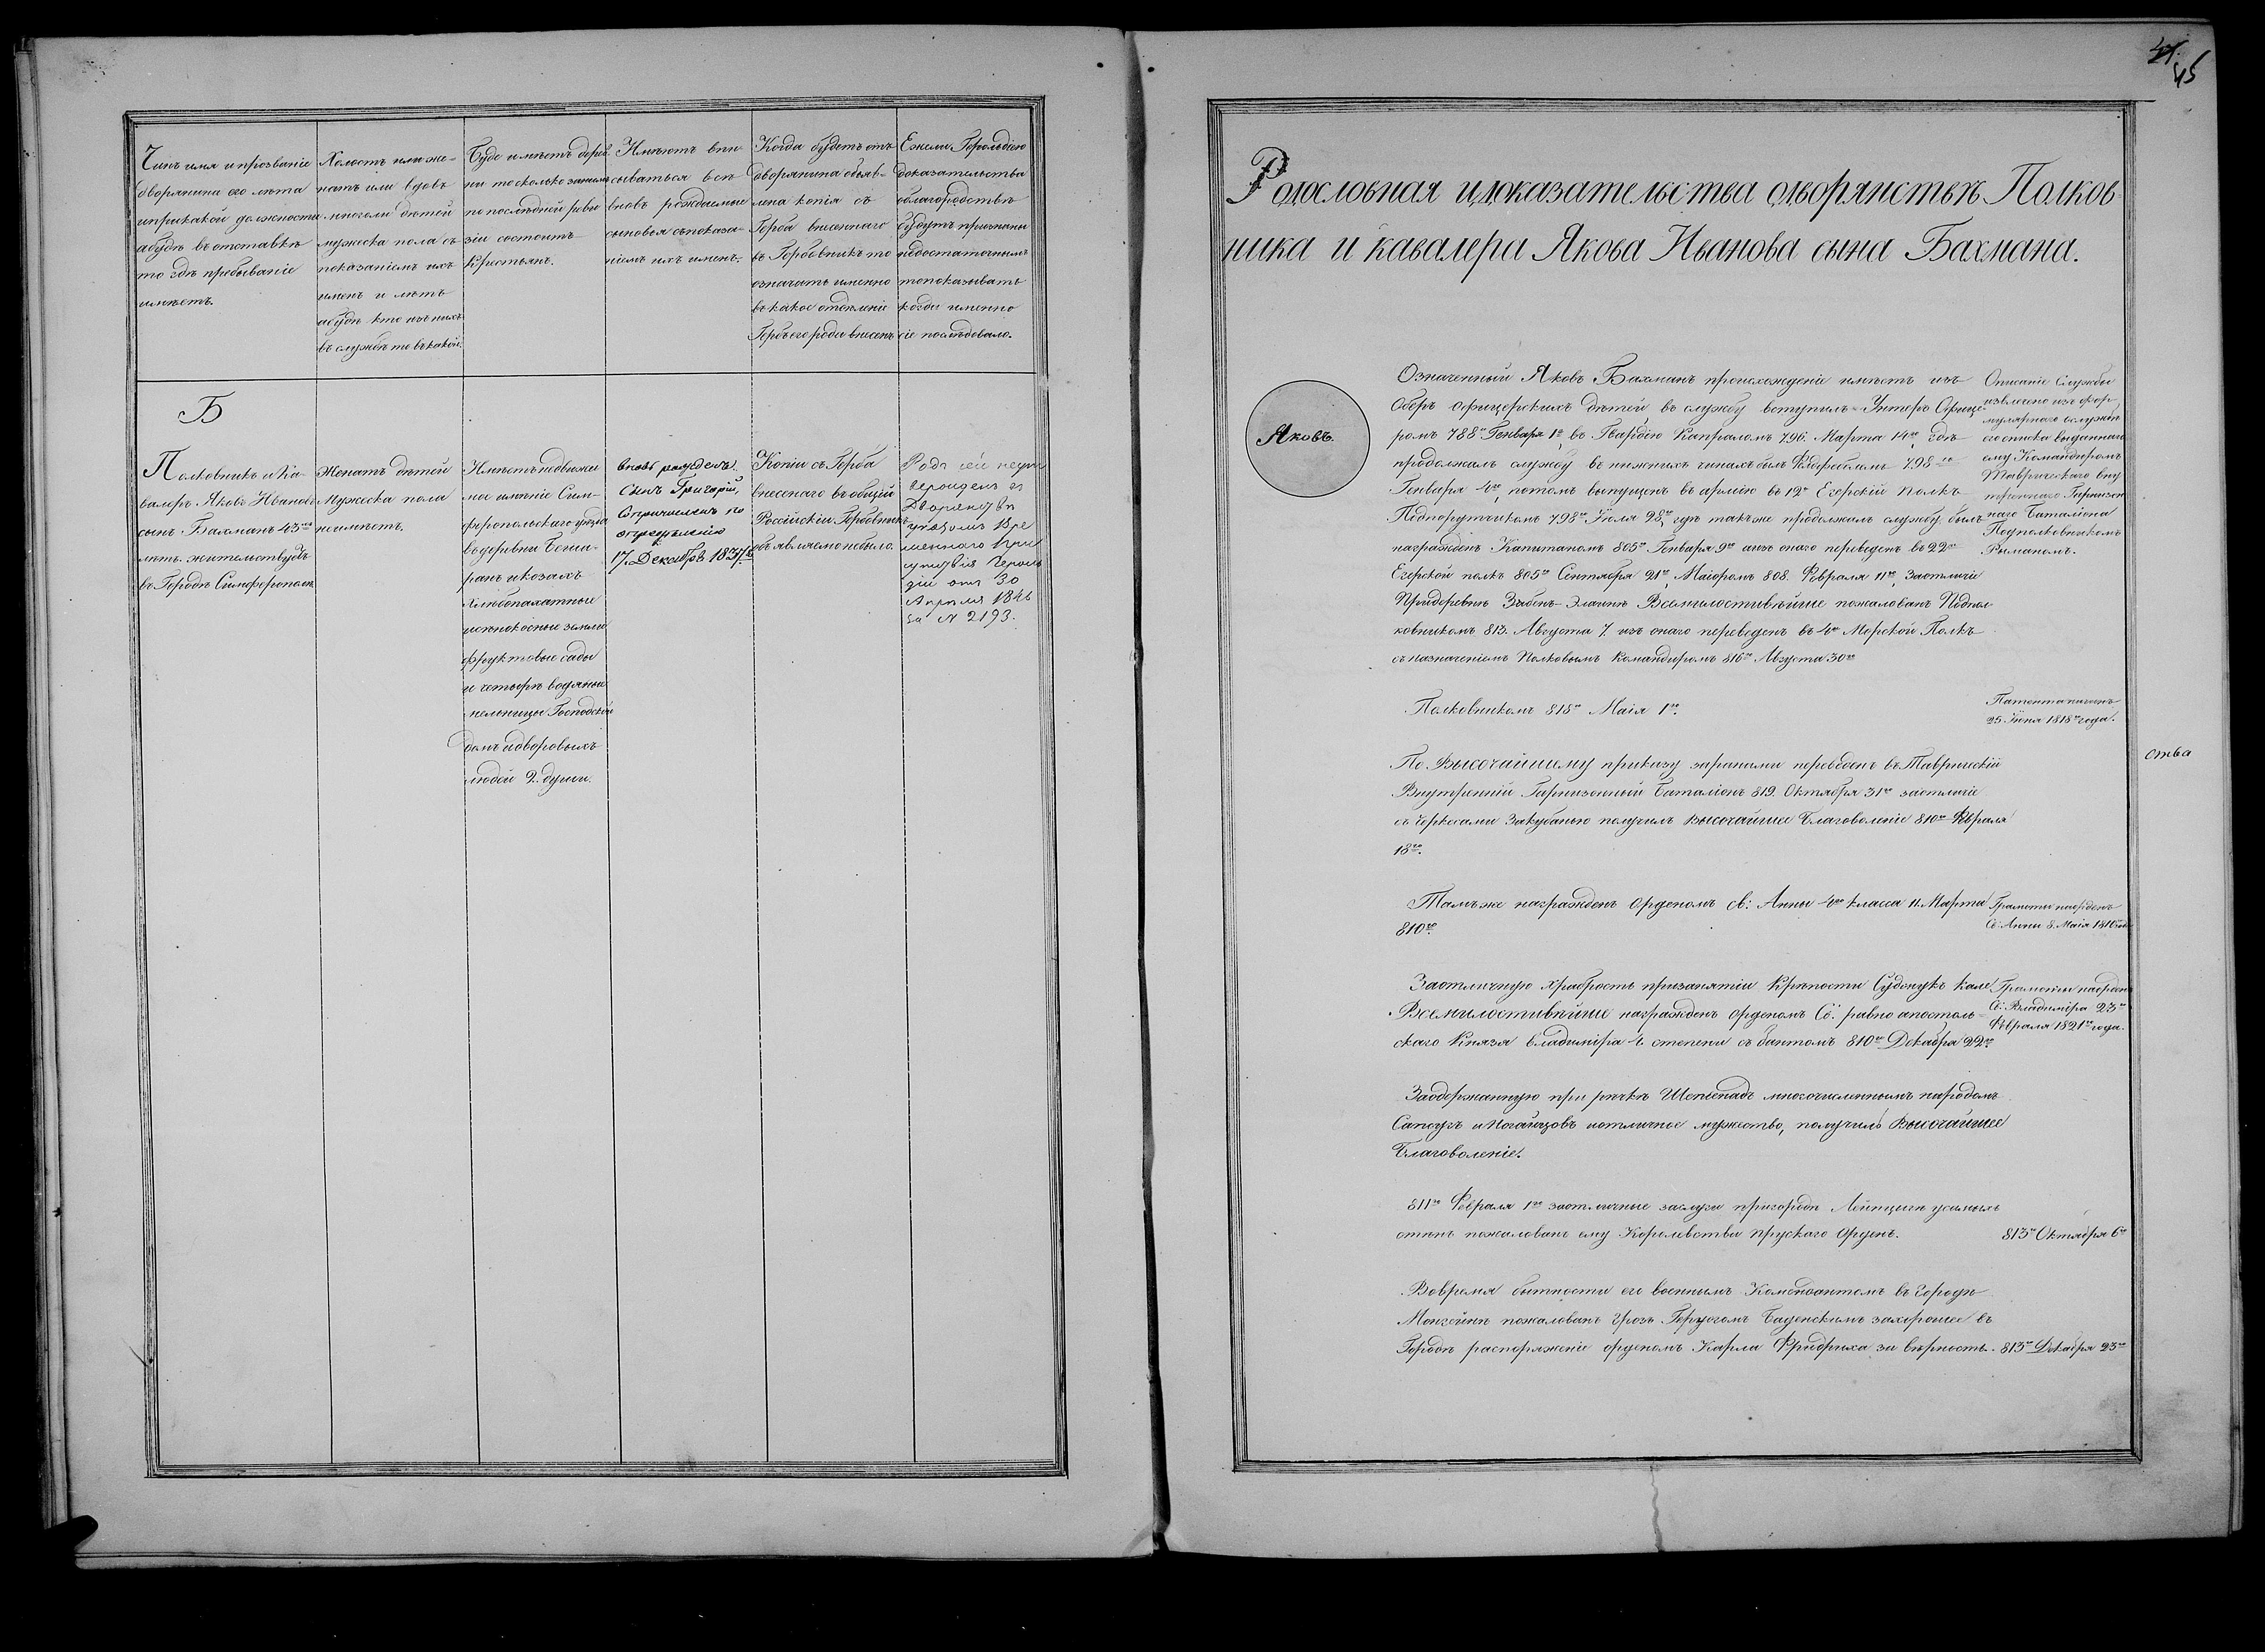 Чинъ имя и прозваніе
дворянина его лѣта
и при какой должности
а будѣ въ отставкѣ
то гдѣ пребываніе
имѣетъ.
Холостъ или же-
натъ или вдовъ
многоли дѣтей
мужеска пола съ
показаніемъ ихъ
именъ и лѣтъ
а будѣ кто изъ нихъ
въ службѣ то въ какой.
Буде имѣетъ дерев
ни то сколько за нимъ
по послѣдней реви
зіи состоитъ
Крестьянъ.
Имѣютъ впи
сываться всѣ
вновь рождаемые
сыновья съ показа-
ніемъ ихъ именъ.
Когда будетъ отъ
дворянина объяв-
лена копія съ
Герба внесеннаго
въ Гербовникъ то
означать именно
въ какое отдѣленіе
Гербъ его рода внесенъ
Ежели Герольдіею
доказательства
о благородствѣ
будутъ признаны
недостаточнымъ
то показывать
когда именно
сіе послѣдовало.
Б
Полковникъ и Ка-
валеръ Яковъ Ивановъ
сынъ Бахманъ 43хъ
лѣтъ. жительствуетъ
въ Городѣ Симферополѣ
Женатъ дѣтей
Мужеска пола
не имѣетъ.
Имѣетъ недвижи
мое имѣніе Сим-
феропольскаго уѣзда
въ деревни
хлѣбопахатные
и сѣнокосные земли
фруктовые сады
и четырѣ водяные
мельницы Господской
домъ и дворовыхъ
людей 2. души.
вновь рожденъ.
Сынъ Григорій,
Сопричисленъ по
опредѣленію
17. Декабрѧ 1837го
Копіи съ Герба
внесенаго въ общій
Россійскій Гербовникъ
объявляемо небыло.
Родъ сей не ут
вержденъ въ
Дворянствѣ
указомъ Вре
меннаго При
сутствія Героль
діи отъ 30
Апрѣля 1846
за № 2193.
45
Родословная и доказательства о дворянствѣ Полков-
ника и кавалера Якова Иванова сына Бахмана.
Яковъ.
Означенный Яковъ Бахманъ происхожденіе имѣетъ изъ
Оберъ офицерскихъ дѣтей въ службу вступилъ Унтеръ Офице-
ромъ 788го Генваря 1го, въ Гвардію Капраломъ 796. Марта 14го, гдѣ
продолжалъ службу въ нижнихъ чинахъ былъ Фелдфебелемъ 798го
Генваря 4го, потомъ выпущенъ въ армію въ 12й Егерскій полкъ
Подпорутчикомъ 798го Іюля 28го, гдѣ также продолжалъ службу, былъ
награжденъ Капитаномъ 805го Генваря 9го а изъ онаго переведенъ въ 22й
Егерской полкъ 805го Сентября 21го, Маіоромъ 808. Февраля 11го, за отличіе
При деревнѣ Всемилостивѣйше пожалованъ Подпол
ковникомъ 813. Августа 7. изъ онаго переведенъ въ 4й Морской Полкъ
съ назначеніемъ Полковымъ Командиромъ 816го Августа 30го
Описаніе Службы
извлечено изъ фор-
мулярнаго о службѣ
его списка выданнаго
ему Командиромъ
Таврическаго вну
тренняго Гарнизон
наго Баталіона
Подполковникомъ
Риманомъ.
Полковникомъ 818го Маія 1го.
Патентъ на чинъ
25. Іюня 1818го года.
По Высочайшему приказу за ранами переведенъ въ Таврическій
Внутренній Гарнизонный Баталіонъ 819. Октября 31го за отличіе
съ Черкесами За Кубанью получилъ Высочайшее Благоволеніе 810го Февраля
18го.
ства
Тамъ же награжденъ Орденомъ св: Анны 4го класса 11. Марта
810го.
Грамота на орденъ
Св: Анны 8. Маія 1810 года
За отличную храбрость при занятіи Крѣпости Суджукъ Кале
Всемилостивѣйше награжденъ орденомъ Св: равно апостоль-
скаго Князя Владиміра 4. степени съ бантомъ 810го Декабря 22го.
Грамота на орденъ
Св: Владиміра 23го
Февраля 1821го года.
За одержанную при рѣкѣ многочисленнымъ народомъ
и Ногайцовъ и отличное мужество, получилъ Высочайшее
Благоволеніе.
811го Февраля 1го за отличные заслуги при городѣ Лейпцигѣ у самыхъ
стѣнъ пожалованъ ему Королевства Прускаго Орденъ.
813го Октября 6го
Во время бытности его военнымъ Комендантомъ въ Городѣ
пожалованъ Грозъ Герцогомъ Баденскимъ за хорошее въ
Городѣ распоряженіе орденомъ Карла Фридриха за вѣрность.
813го Декабря 23го